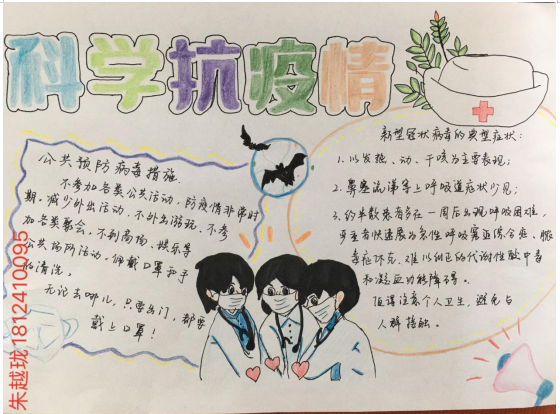 科学抗疫情
公共预防病毒措施
不参加各类公共活动,防疫情非常时
期,减少外出活动,不外出游玩,不参
加各类聚会,不到商场、娱乐等
公共场所活动,佩戴口罩和手
的清洗。
无论去哪儿,只要出门,都要
戴上口罩!
新型冠状病毒的典型症状:
1.以发热、动、干咳为主要表现;
2.鼻塞流涕等上呼吸道症状少见;
3.约半数患者多在一周后出现呼吸困难,
严重者快速展为急性呼吸窘迫综合症、脓
毒症休克、难以纠正的代谢性酸中毒
和凝血功能障碍。
值得注意个人卫生,避免与
人群接触。
朱越珑 18124100095